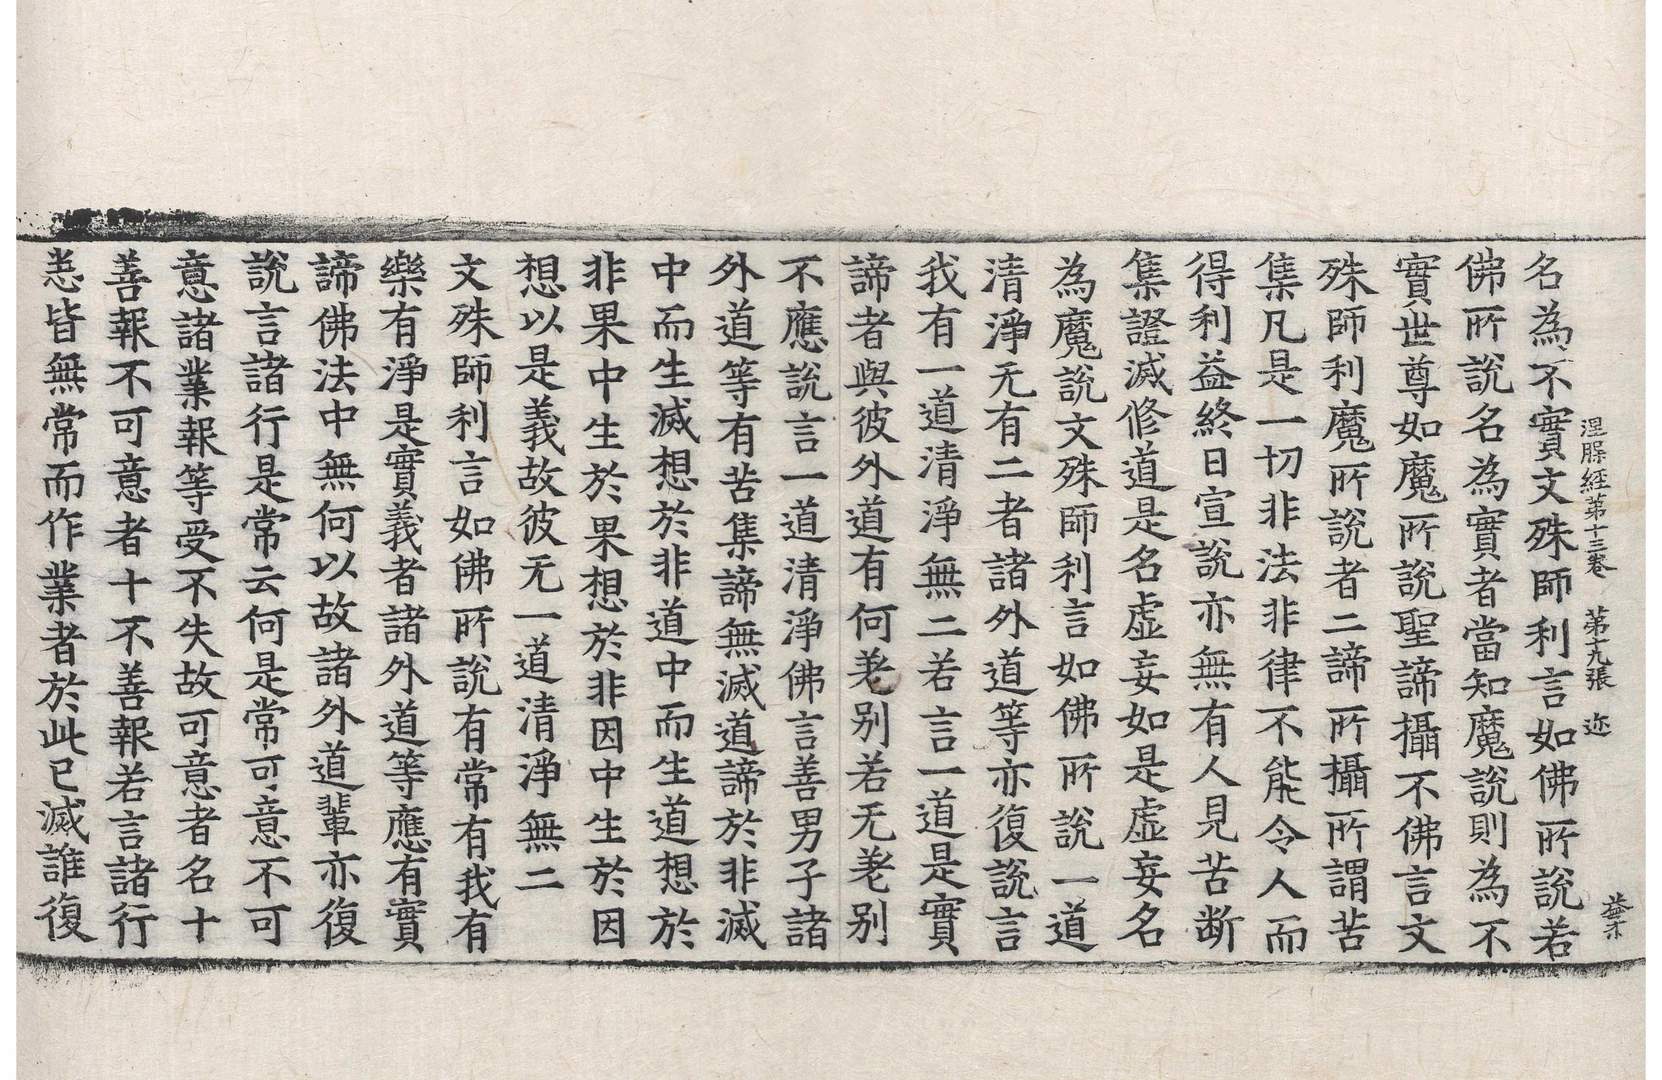 涅槃経第十三卷　第十九張　迩
名為不實文殊師利言如佛所說若
佛所說名為實者當知魔說則為不
實世尊如魔所說聖諦攝不佛言文
殊師利魔所說者二諦所攝所謂苦
集凡是一切非法非律不能令人而
得利益終日宣說亦無有人見苦断
集證滅修道是名虛妄如是虛妄名
為魔說文殊師利言如佛所說一道
清淨无有二者諸外道等亦復說言
我有一道清淨無二若言一道是實
諦者與彼外道有何差別若无差別
不應說言一道清淨佛言善男子諸
外道等有苦集諦無滅道諦於非滅
中而生滅想於非道中而生道想於
非果中生於果想於非因中生於因
想以是義故彼无一道清淨無二
文殊師利言如佛所說有常有我有
樂有淨是實義者諸外道等應有實
諦佛法中無何以故諸外道輩亦復
說言諸行是常云何是常可意不可
意諸業報等受不失故可意者名十
善報不可意者十不善報若言諸行
悉皆無常而作業者於此已滅誰復